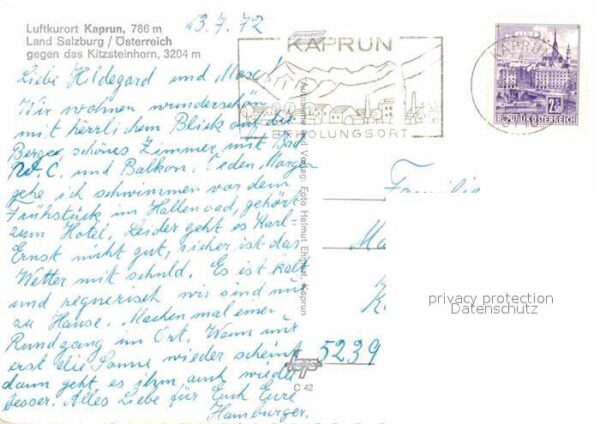 Luftkurort Kaprun, 786 m
Land Salzburg / Österreich
gegen das Kitzsteinhorn, 3204 m
13.7.72
Liebe Hildegard und
Wir wohnen wunderschön
mit herrlichem Blick auf die
Berge, schönes Zimmer mit Bad
W.C. und Balkon. Jeden Morgen
gehe ich schwimmen vor dem
Frühstück im Hallenbad, gehört
zum Hotel, Leider geht es Karl-
Ernst nicht gut, sicher ist das
Wetter mit schuld. Es ist kalt
und regnerisch wir sind nur
zu Hause. Machen mal einen
Rundgang im Ort. Wenn
erst die Sonne wieder scheint
dann geht es ihm auch wieder
besser. Alles Liebe für Euch Eure
Hamburger.
KAPRUN
ERHOLUNGSORT
KAPRUN
2S
REPUBLIK ÖSTERREICH
und Verlag: Foto Helmut Kaprun
C 42
Familie
Ma
K
5239
privacy protection
Datenschutz